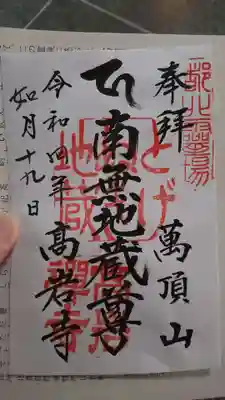 奉拝
萬頂山
南無地蔵尊
とげ
地蔵
高岩
禅寺
令和四年
髙岩寺
如月十九日